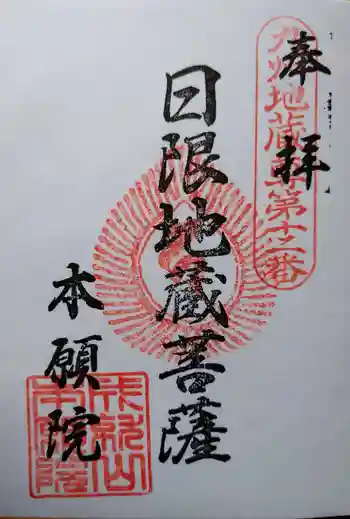 奉拝
九州地蔵尊第十二番
日限地蔵菩薩
本願院
成就山
本願院